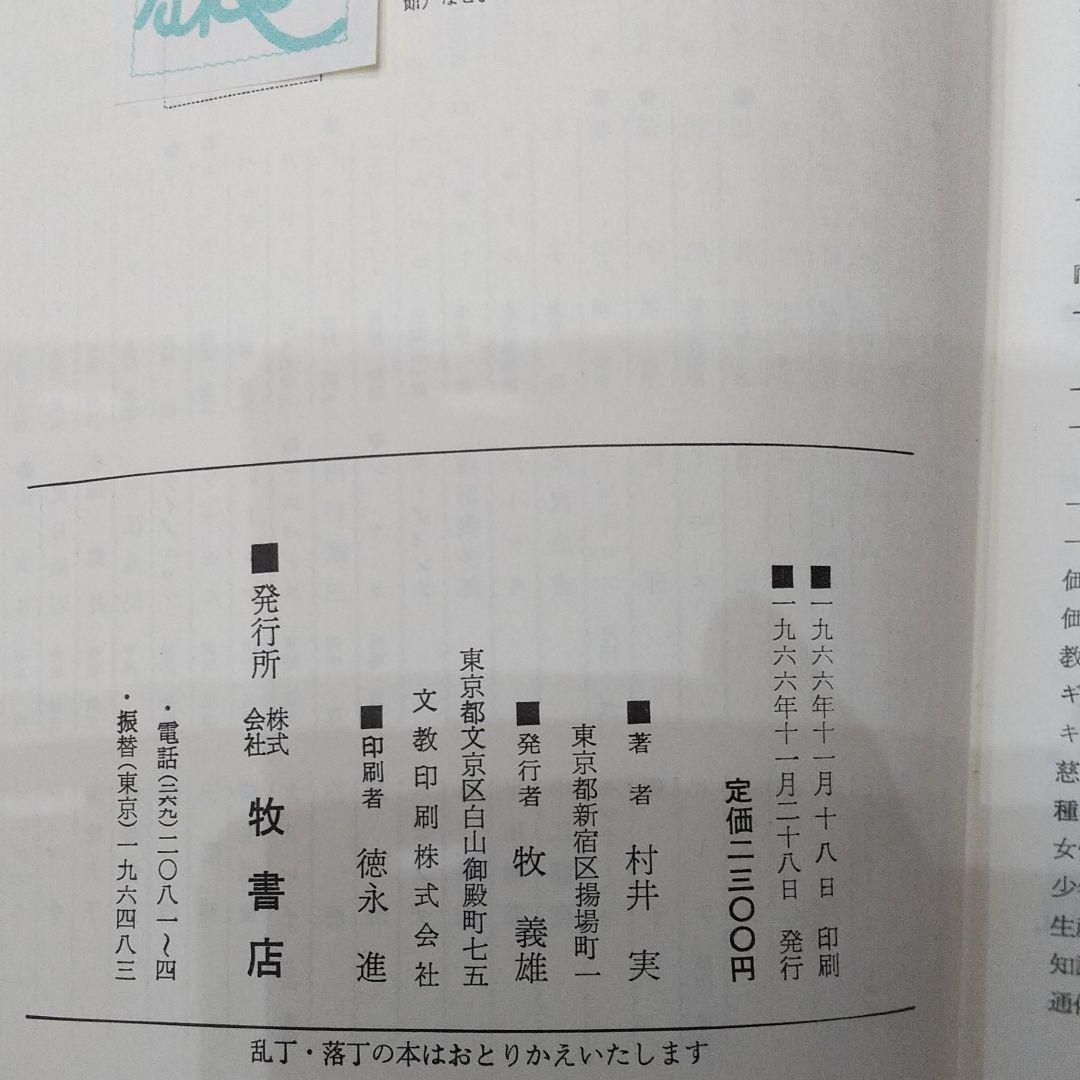 ■一九六六年十一月十八日 印刷
■一九六六年十一月二十八日 発行
定価二三〇〇円
■著者 村井 実
東京都新宿区揚場町一
■発行者 牧 義雄
東京都文京区白山御殿町七五
文教印刷株式会社
■印刷者 徳永 進
■発行所 株式会社 牧書店
・電話(二六九)二〇八一～四
・振替(東京)一九六四八三
乱丁・落丁の本はおとりかえいたします